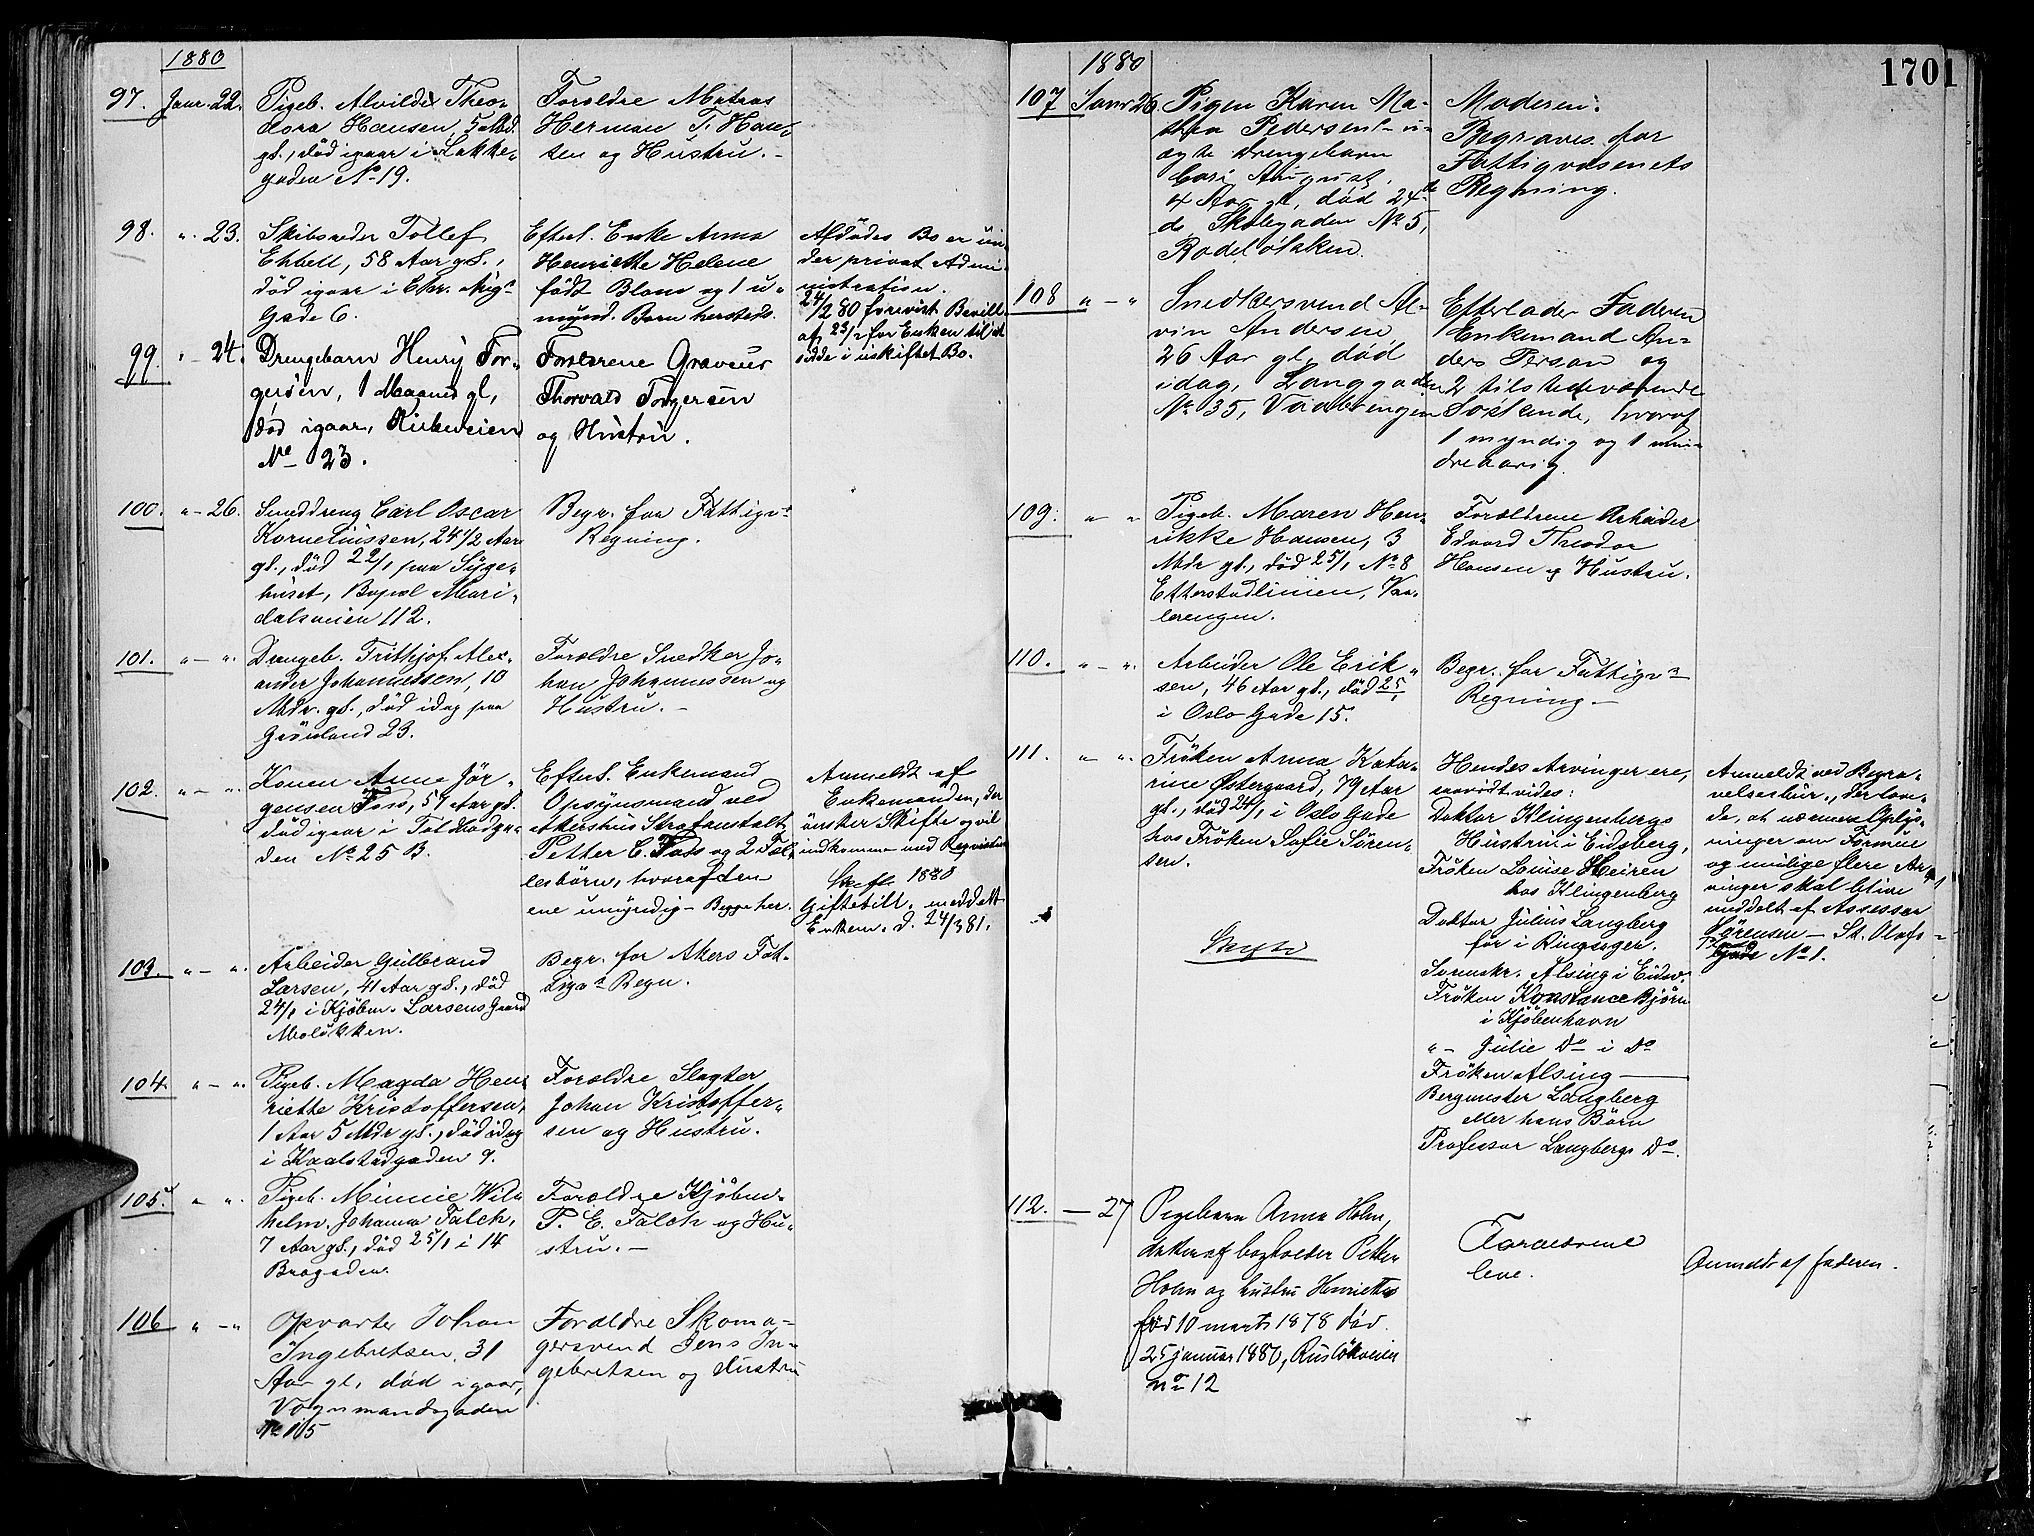 1880
97. Janr. 22. Pigeb. Alvilde Theo-
dora Hansen, 5 Md.
gl., død igaar i Lakke-
gaden No 19.
Foreldre Matros
Herman T. Han-
sen og Hustru. -
98. " 23. Skibsreder Tollef
58 Aar gl.,
død igaar i Chr. Aug.
Gade 6.
Efterl. Enke Anna
Henriette Helene
født Blom og 1 u-
mynd. Barn hersteds.
Afdødes Bo er un-
der privat Admi-
nistration.
24/2 80 forevist Bevill.
af 23/2 for Enken til at
sidde i uskiftet Bo.
99. " 24. Drengebarn Henry Tor-
gersen, 1 Maaned gl,
død igaar, Kirkeveien
No 23.
Forældrene Graveur
Thorvald Torgersen
og Hustru.
100. "- 26. Smeddreng Carl Oscar
Korneliussen, 24 1/2 Aar
gl., død 22/1 paa Syge-
huset, Bopæl Mari-
dalsveien 112.
Begr. for Fattigvs
Regning.
101. "-" Drengeb. Frithjof Alex-
ander Johannessen, 10
Mdr. gl., død idag paa
Grønland 23.
Forældre Snedker Jo-
han Johannessen og
Hustru. -
102. "-" Konen Anne Jør-
gensen Foss, 57 Aar gl.
død igaar i Toldbodga-
den No 25 B.
Efterl. Enkemand
Opsynsmand ved
Akershus Strafanstalt
Petter C. Foss og 2 Fæl-
lesbörn, hvoraf den
ene umyndig - Begge her.
Anmeldt af
Enkemanden, der
ønsker Skifte og vil
indkomme med Reqvisition
Skifte 1880
Giftebill. meddelt
Enkem. d. 24/3 81.
103. "-" Arbeider Gulbrand
Larsen, 41 Aar gl., død
24/1 i Kjøbm. Larsens Gaard
Moløkken.
Begr. for Akers Fat-
tigvs Regn.
104. "-" Pigeb. Magda Hen-
riette Kristoffersen,
1 Aar 5 Mdr gl., død idag
i Kaalstadgaden 9.
Forældre Slagter
Johan Kristoffer-
sen og Hustru.
105. " " Pigeb. Minnie Wil-
helm. Johanna Falch,
7 Aar gl., død 25/1 i 14
Brogaden.
Forældre Kjøbm.
P. C. Falch og Hu-
stru. -
106 "-" Opvarter Johan
Ingebretsen, 31
Aar gl, død igaar,
Vognmandsgaden
No 105
Forældre Skoma-
gersvend Jens In-
gebretsen og Hustru
1701
1880
107 Janr 26. Pigen Karen Ma-
thea Pedersens u-
ægte Drengebarn
Carl August,
4 Aar gl, død 24de
ds Skolegaden No 5,
Rodeløkken.
Moderen.
Begraves for
Fattigvæsenets
Regning.
108 "-" Snedkersvend Al-
vin Andersen
26 Aar gl, død
idag, Langgaden
No 35, Vaalerengen
Efterlader Faderen
Enkemand An-
ders Person og
2 tilstedeværende
Søskende, hvoraf
1 myndig og 1 min-
dreaarig.
109. "-" Pigeb. Maren Hen-
rikke Hansen, 3
Mdr gl., død 25/1 No 8
Etterstadlinien, Vaa-
lerengen.
Forældrene Arbeider
Edvard Theodor
Hansen & Hustru.
110. "-" Arbeider Ole Erik-
sen, 46 Aar gl., død 25/1
i Oslo Gade 15.
Begr. for Fattigvs
Regning -
111. "-" Frøken Anna Katha-
rine Østergaard, 79 Aar
gl., død 24/1 i Oslo Gade
hos Frøken Sofie Søren-
sen.
Skifte
Hendes Arvinger ere,
saavidt vides:
Doktor Klingenbergs
Hustru i Eidsberg,
Frøken Louise Heiren
hos Klingenberg
Doktor Julius Langberg
før i Ringsager.
Sorenskr. Alsing i Eidsv.
Frøken Konstance Bjørn
i Kjøbenhavn
"- Julie Do i Do
Frøken Alsing -
Bergmester Langberg
eller hans Börn
Professor Langbergs Do.
Anmeldt ved Begra-
velsesbur., der love-
de, at nærmere Oplys-
ninger om Formue
og mulige flere Ar-
vinger skal blive
meddelt af Assessor
Sørensen - St. Olafs
Gade No 1.
112. - 27 Pigebarn Anna Holm,
datter af bogholder Petter
Holm og hustru Henriette
född 10 marts 1878 död
25 januar 1880, Ruslökveien
no 12
Foraeldrene
leve.
Anmeldt af faderen.